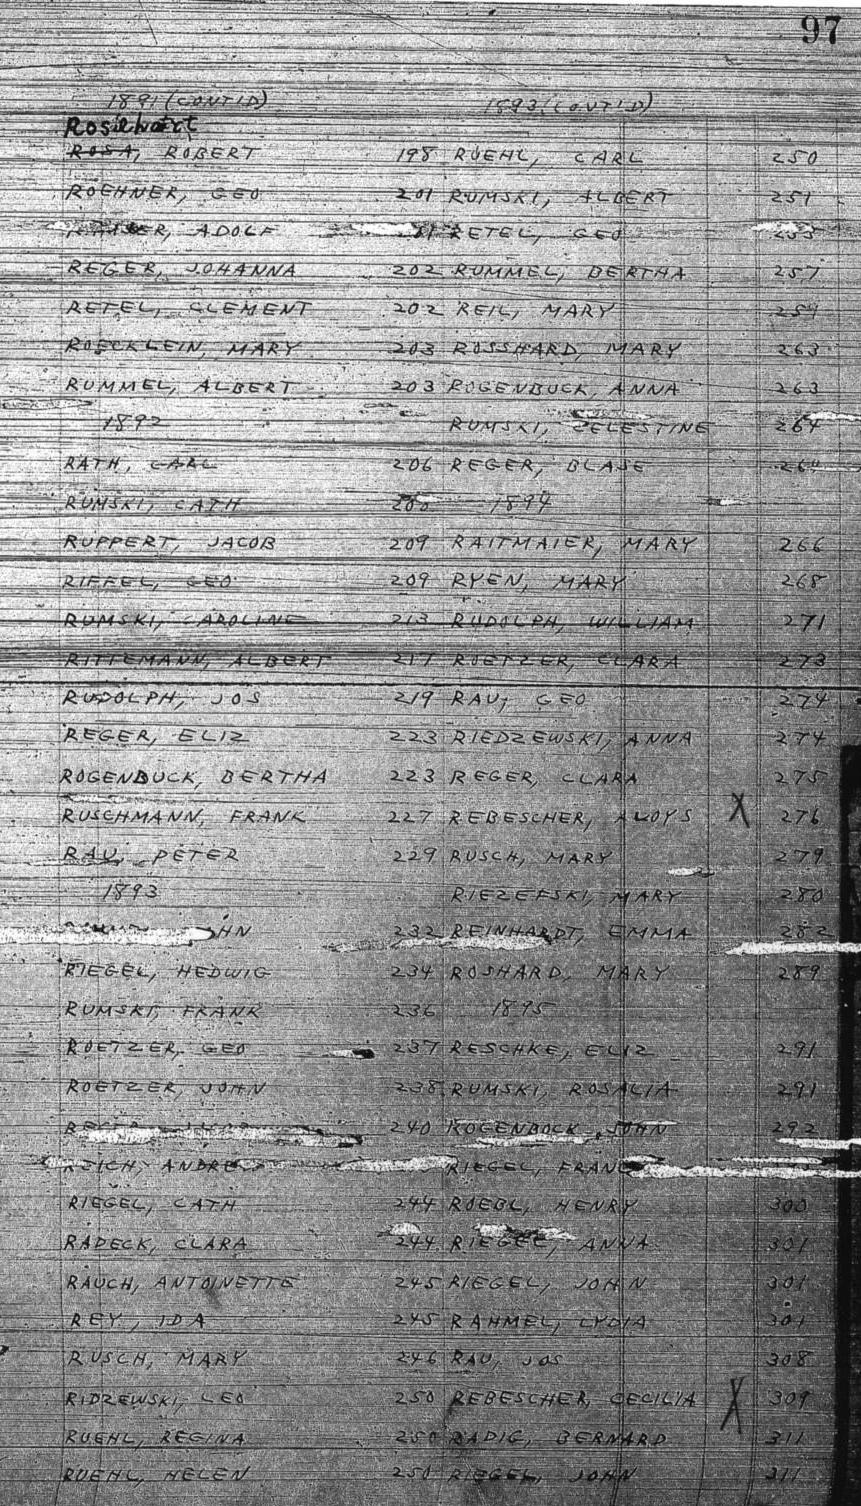 97
1891 (CONT'D)
ROSA, ROBERT 198
ROEHNER, GEO 201
ADOLF
REGER, JOHANNA 202
RETEL, CLEMENT 202
ROECKLEIN, MARY 203
RUMMEL, ALBERT 203
1892
RATH, CARL 206
RUMSKI, CATH
RUPPERT, JACOB 209
RIFFEL, GEO 209
RUMSKI, CAROLINE 213
RITTEMANN, ALBERT 217
RUDOLPH, JOS 219
REGER, ELIZ 223
ROGENBUCK, BERTHA 223
RUSCHMANN, FRANK 227
RAU, PETER 229
1893
232
RIEGEL, HEDWIG 234
RUMSKI, FRANK 236
ROETZER, GEO 237
ROETZER, JOHN 238
240
RIEGEL, CATH 244
RADECK, CLARA 244
RAUCH, ANTOINETTE 245
REY, IDA 245
RUSCH, MARY 246
RIDZEWSKI, LEO 250
RUEHL, REGINA 250
RUEHL, HELEN 250
1893 (CONT'D)
RUEHL, CARL 250
RUMSKI, ALBERT 251
RETEL, GEO
RUMMEL, BERTHA 257
REIL, MARY 259
ROSSHARD, MARY 263
ROGENBUCK, ANNA 263
RUMSKI, CELESTINE 264
REGER, BLASE
1894
RAITMAIER, MARY 266
RYEN, MARY 268
RUDOLPH, WILLIAM 271
ROETZER, CLARA 273
RAU, GEO 274
RIEDZEWSKI, ANNA 274
REGER, CLARA 275
REBESCHER, ALOYS X 276
RUSCH, MARY 279
RIEZEFSKI, MARY 280
REINHARDT, EMMA 282
ROSHARD, MARY 289
1895
RESCHKE, ELIZ 291
RUMSKI, ROSALIA 291
ROGENBOCK, JOHN 292
RIEGEL,
ROEBL, HENRY 300
RIEGEL, ANNA 301
RIEGEL, JOHN 301
RAHMEL, LYDIA 301
RAU, JOS 308
REBESCHER, CECILIA X 309
RADIG, BERNARD 311
RIEGEL, JOHN 311